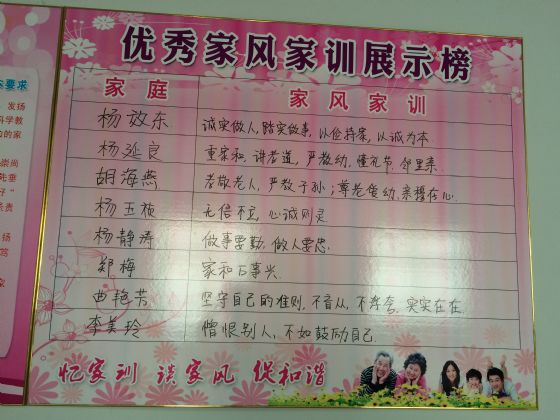 优秀家风家训展示榜
家庭 家风家训
杨效东 诚实做人,踏实做事,以俭持家,以诚为本
杨延良 重家和,讲孝道,严教幼,懂礼节,邻里亲.
胡海燕 孝敬老人,严教子孙;尊老爱幼,亲穆在心.
杨玉祯 无信不立,心诚则灵
杨静涛 做事要勤,做人要忠.
郑梅 家和万事兴.
曲艳芳 坚守自己的准则,不盲从,不浮夸,实实在在.
李美玲 憎恨别人,不如鼓励自己.
忆家训 谈家风 促和谐
要求
发扬
科学教
的家
崇尚
先垂
好"
扬
笃